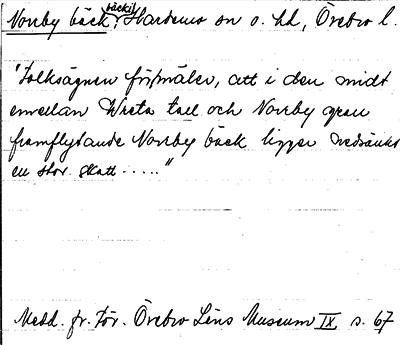 Norrby bäck, bäcki Hardemo sn o. hd, Örebro l.
"Folksägnen förmäler, att i den midt
emellan Wreta tall och Norrby gran
framflytande Norrby bäck ligger nedsänkt
en stor skatt ....."
Medd. fr. För. Örebro Läns Museum IX, s. 67